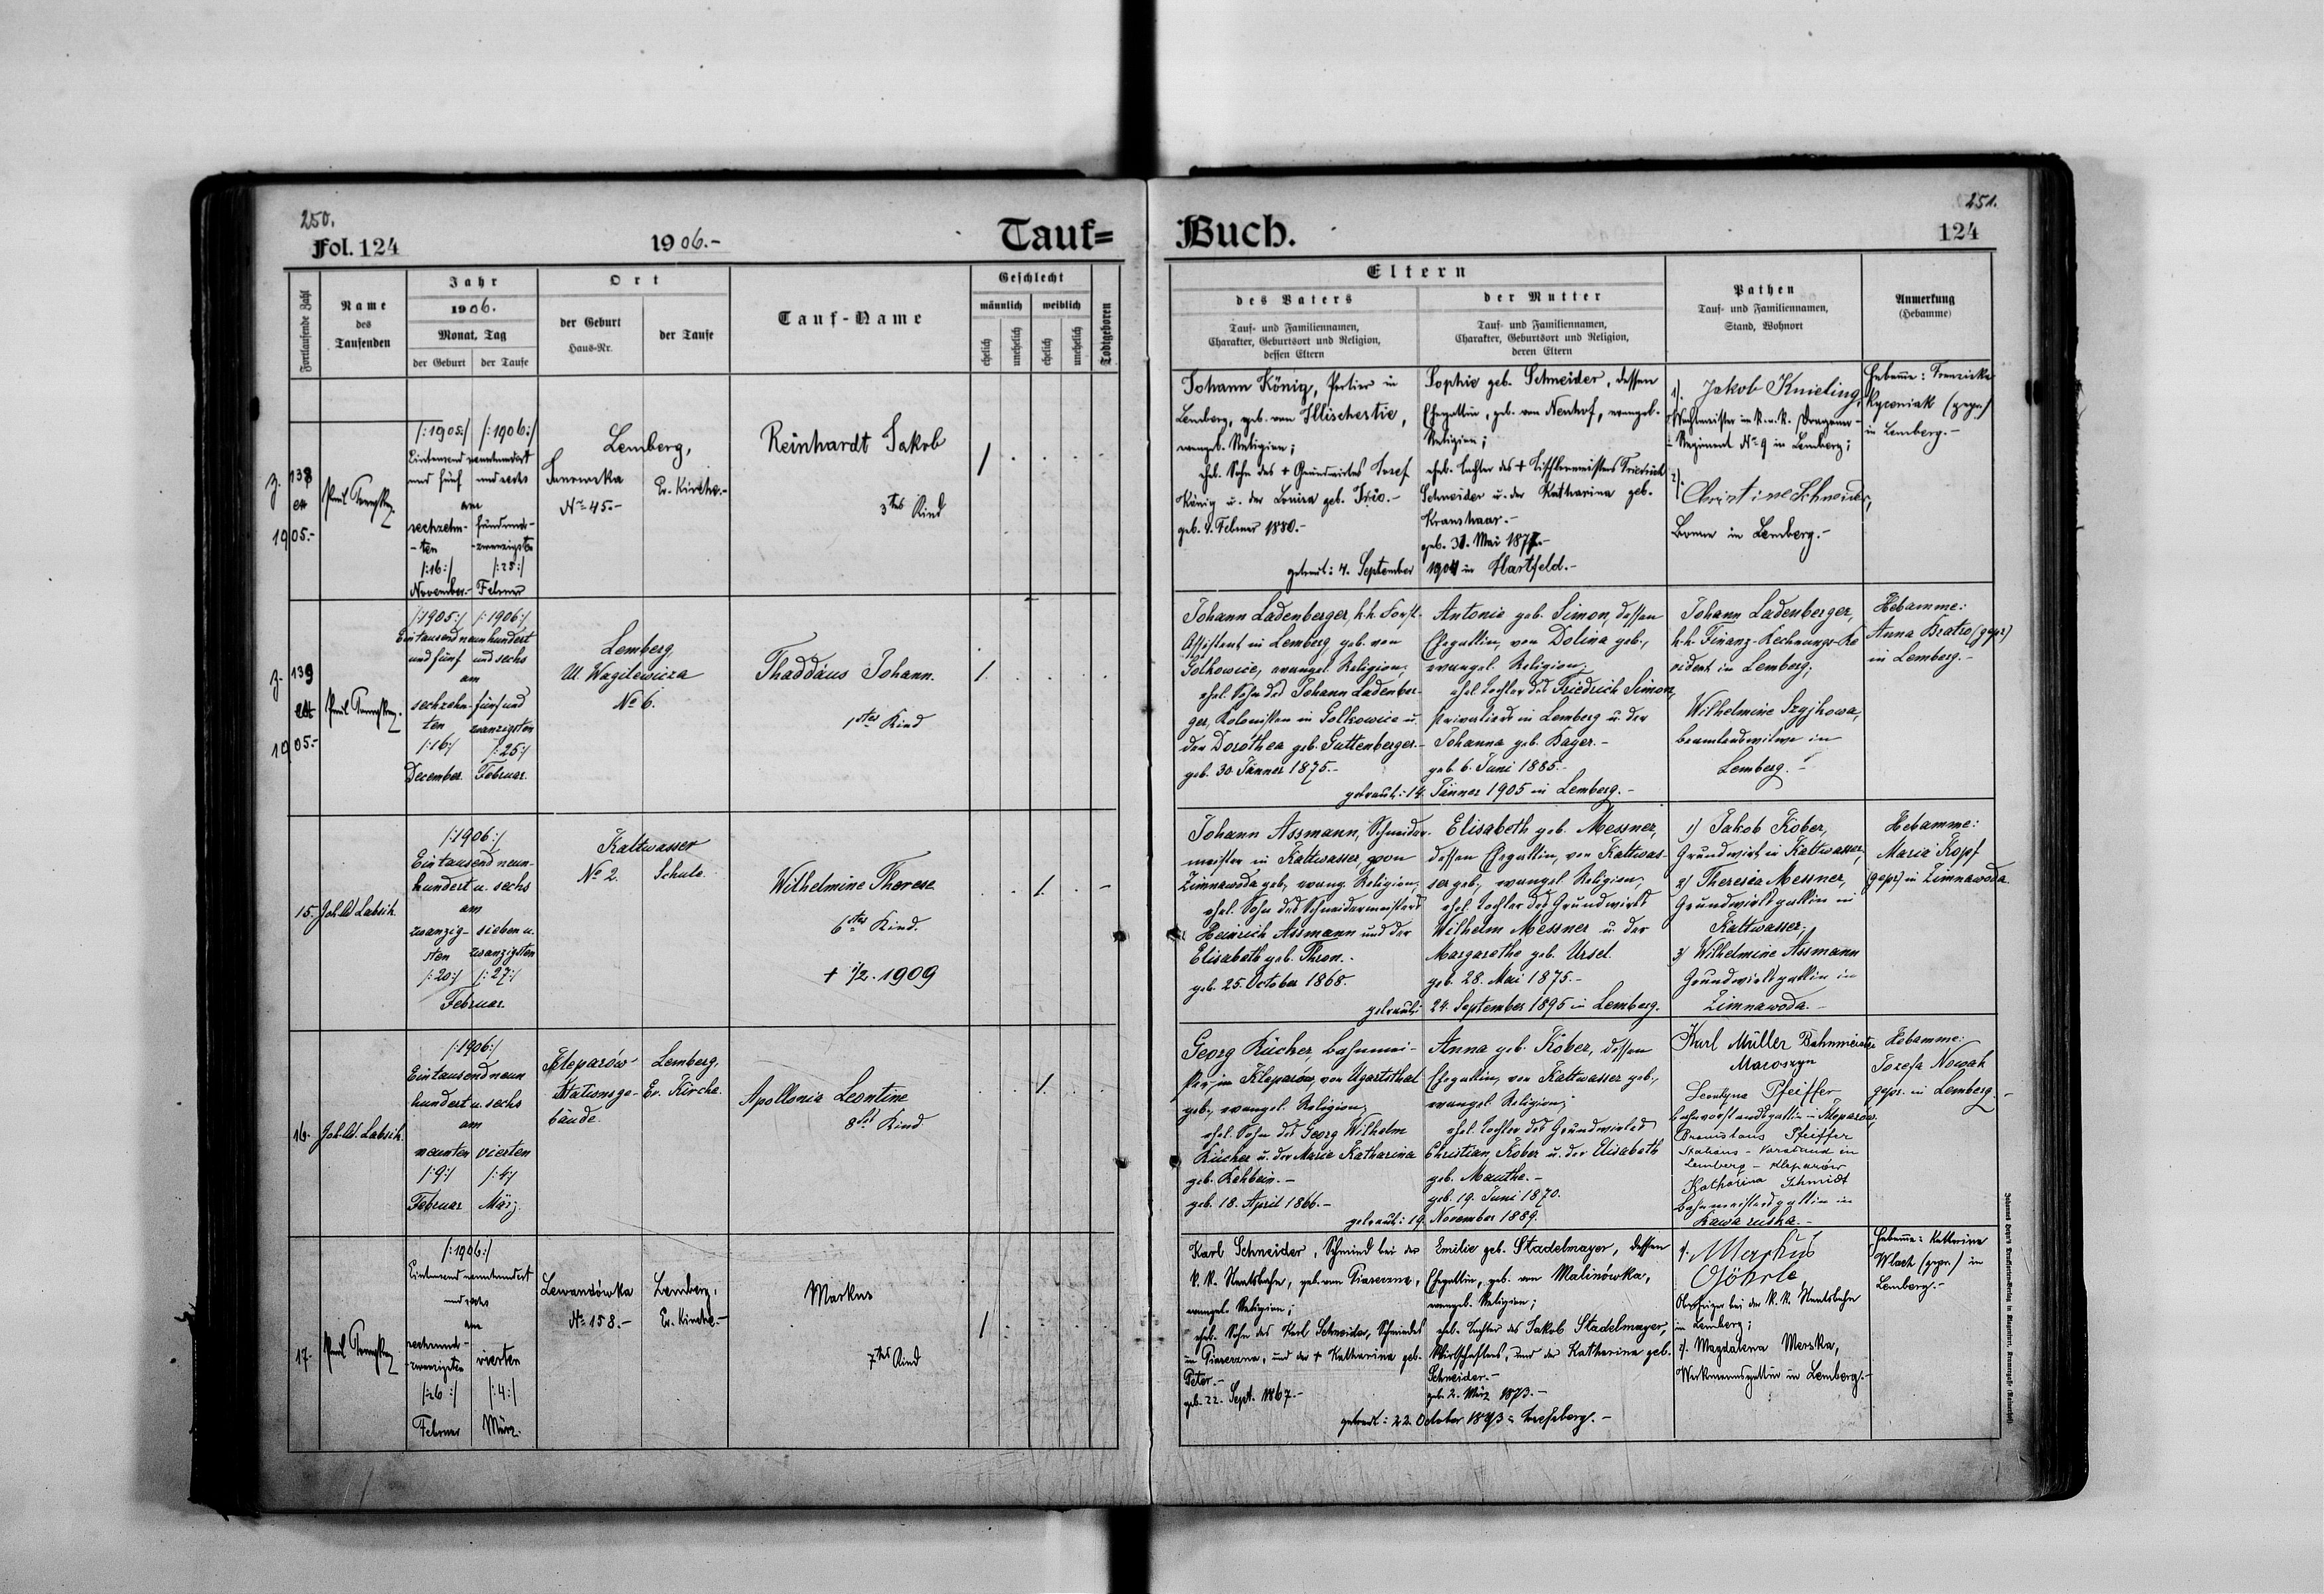 250.
Fol. 124
1906.-
Tauf=
Fortlaufende Zahl
Name
des
Taufenden
Jahr
1906.
Monat, Tag
der Geburt
der Taufe
Ort
der Geburt
Haus-Nr.
der Taufe
Tauf-Name
Geschlecht
männlich
weiblich
ehelich
unehelich
ehelich
unehelich
Todtgeboren
z. 138
ex
1905.-
/:1905:/ /:1906:/
Eintausend neunhundert
und fünf und sechs
am
sechzehn- fünfund-
-ten -zwanzigsten
/:16:/ /:25:/
November.- Februar
Lemberg,
Janowska Ev. Kirche.-
No 45.-
Reinhardt Jakob
3tes Kind
z. 139
ex
1905.-
/:1905:/ /:1906:/
Eintausend neunhundert
und fünf und sechs
am
sechzehn- fünfund
ten zwanzigsten
/:16:/ /:25:/
December. Februar.
Lemberg
Ul. Wagilewicza
No 6.
Thaddäus Johann.
1tes Kind
15. Joh. Ad. Labsik.
/:1906:/
Eintausend neun-
hundert u. sechs
am
zwanzig- sieben u.
sten zwanzigsten
/:20:/ /:27:/
Februar.
Kaltwasser
No 2. Schule.
Wilhelmine Therese
6tes Kind.
+ 1/2. 1909
16. Joh. Ad. Labsik.
/:1906:/
Eintausend neun
hundert u. sechs
am
neunten vierten
/:9:/ /:4:/
Februar März.
Kleparów Lemberg,
Stationsge- Ev. Kirche.
bäude.
Apollonia Leontine
8tes Kind
17.
/:1906:/
Eintausend neunhundert
und sechs
am
sechsund-
-zwanzigsten vierten
/:26:/ /:4:/
Februar März.
Lewandówka Lemberg,
No 158.- Ev. Kirche.-
Markus
7tes Kind
Buch.
251.
124
Eltern
des Vaters
Tauf- und Familiennamen,
Charakter, Geburtsort und Religion,
dessen Eltern
der Mutter
Tauf- und Familiennamen,
Charakter, Geburtsort und Religion,
deren Eltern
Pathen
Tauf- und Familiennamen,
Stand, Wohnort
Anmerkung
(Hebamme)
Johann König, Portier in
Lemberg, geb. von
evangel. Religion;
ehel. Sohn des + Grundwirtes Josef
König u. der Louisa geb.
geb. Februar 1880.-
Sophie geb. Schneider, dessen
Ehegattin, geb. von Neuhof, evangel.
Religion;
ehel. Tochter des + Tischlermeisters Friedrich
Schneider u. der Katharina geb.
Kranshaar.-
geb. 31. Mai
getraut: 4. September 1904 in Hartfeld.-
1). Jakob Knieling,
Wachtmeister im k.u.k. Dragoner-
Regiment No 9 in Lemberg;
2).
Christine Schneider,
Bonne in Lemberg.-
Hebamme: Franziska
(gepr.)
in Lemberg.-
Johann Ladenberger, k.k. Forst-
Assistent in Lemberg, geb. von
Golkowice, evangel. Religion.
ehel. Sohn des Johann Ladenber-
ger, Kolonisten in Golkowice u.
der Dorothea geb. Guttenberger.-
geb. 30. Jänner 1875.-
Antonie geb. Simon, dessen
Ehegattin, von Dolina geb.,
evangel. Religion,
ehel. Tochter des Friedrich Simon,
Privatiers in Lemberg u. der
Johanna geb. Bager.-
geb. 6. Juni 1885.-
getraut: 14. Jänner 1905 in Lemberg.-
Johann Ladenberger,
k.k. Finanz-Rechnungs-Re
vident in Lemberg;
Wilhelmine Szyjkowa,
Beamtenswitwe in
Lemberg.-
Hebamme:
Anna Bratro (gepr)
in Lemberg.-
Johann Assmann, Schneider-
meister in Kaltwasser, von
Zimnawoda geb., evang. Religion,
ehel. Sohn des Schneidermeisters
Heinrich Assmann und der
Elisabeth geb. Thron.-
geb. 25. October 1868.
Elisabeth geb. Messner,
dessen Ehegattin, von Kaltwas-
ser geb., evangel. Religion,
ehel. Tochter des Grundwirts
Wilhelm Messner u. der
Margarethe geb. Ursel.
geb. 28. Mai 1875.-
getraut: 24. September 1895 in Lemberg.
1) Jakob Kober,
Grundwirt in Kaltwasser,
2) Theresia Messner,
Grundwirtsgattin in
Kaltwasser;
3) Wilhelmine Assmann
Grundwirtsgattin in
Zimnawoda.-
Hebamme:
Maria Kopf
(gepr) in Zimnawoda.
Georg Rücher, Bahnmei-
ster in Kleparów, von Ugartsthal
geb., evangel. Religion,
ehel. Sohn des Georg Wilhelm
Rücher u. der Maria Katharina
geb. Rehbein.-
geb. 18. April 1866.-
Anna geb. Kober, dessen
Ehegattin, von Kaltwasser geb.,
evangel. Religion;
ehel. Tochter des Grundwirtes
Christian Kober u. der Elisabeth
geb. Manthe.-
geb. 19. Juni 1870.
getraut: 19. November 1889.
Karl Müller Bahnmeister
Maroszyn
Leontyna Pfeiffer
Bahnvorstandsgattin in Kleparów,
Bronislaus Pfeiffer
Stations-Vorstand in
Lemberg-Kleparów
Katharina Schmidt
Bahnmeistersgattin in
Rawa ruska.-
Hebamme:
Josefa Nowak
gepr. in Lemberg.-
Karl Schneider, Schmied bei der
k.k. Staatsbahn, geb. von
evangel. Religion;
ehel. Sohn des Karl Schneider, Schmiedes
in und der + Katharina geb.
Peter.-
geb. 22. Sept. 1867.-
Emilie geb. Stadelmayer, dessen
Ehegattin, geb. von Malinówka,
evangel. Religion;
ehel. Tochter des Jakob Stadelmayer,
Wirtschafters, und der Katharina geb.
Schneider.-
geb. 2. März 1873.-
getraut: 22. October 1893 in Josefsberg.-
1). Markus
Göhrle
Oberheizer bei der k.k. Staatsbahn
in Lemberg;
2). Magdalena Merska,
Werkmannsgattin in Lemberg.-
Hebamme: Katharina
Wlach (gepr.) in
Lemberg.-